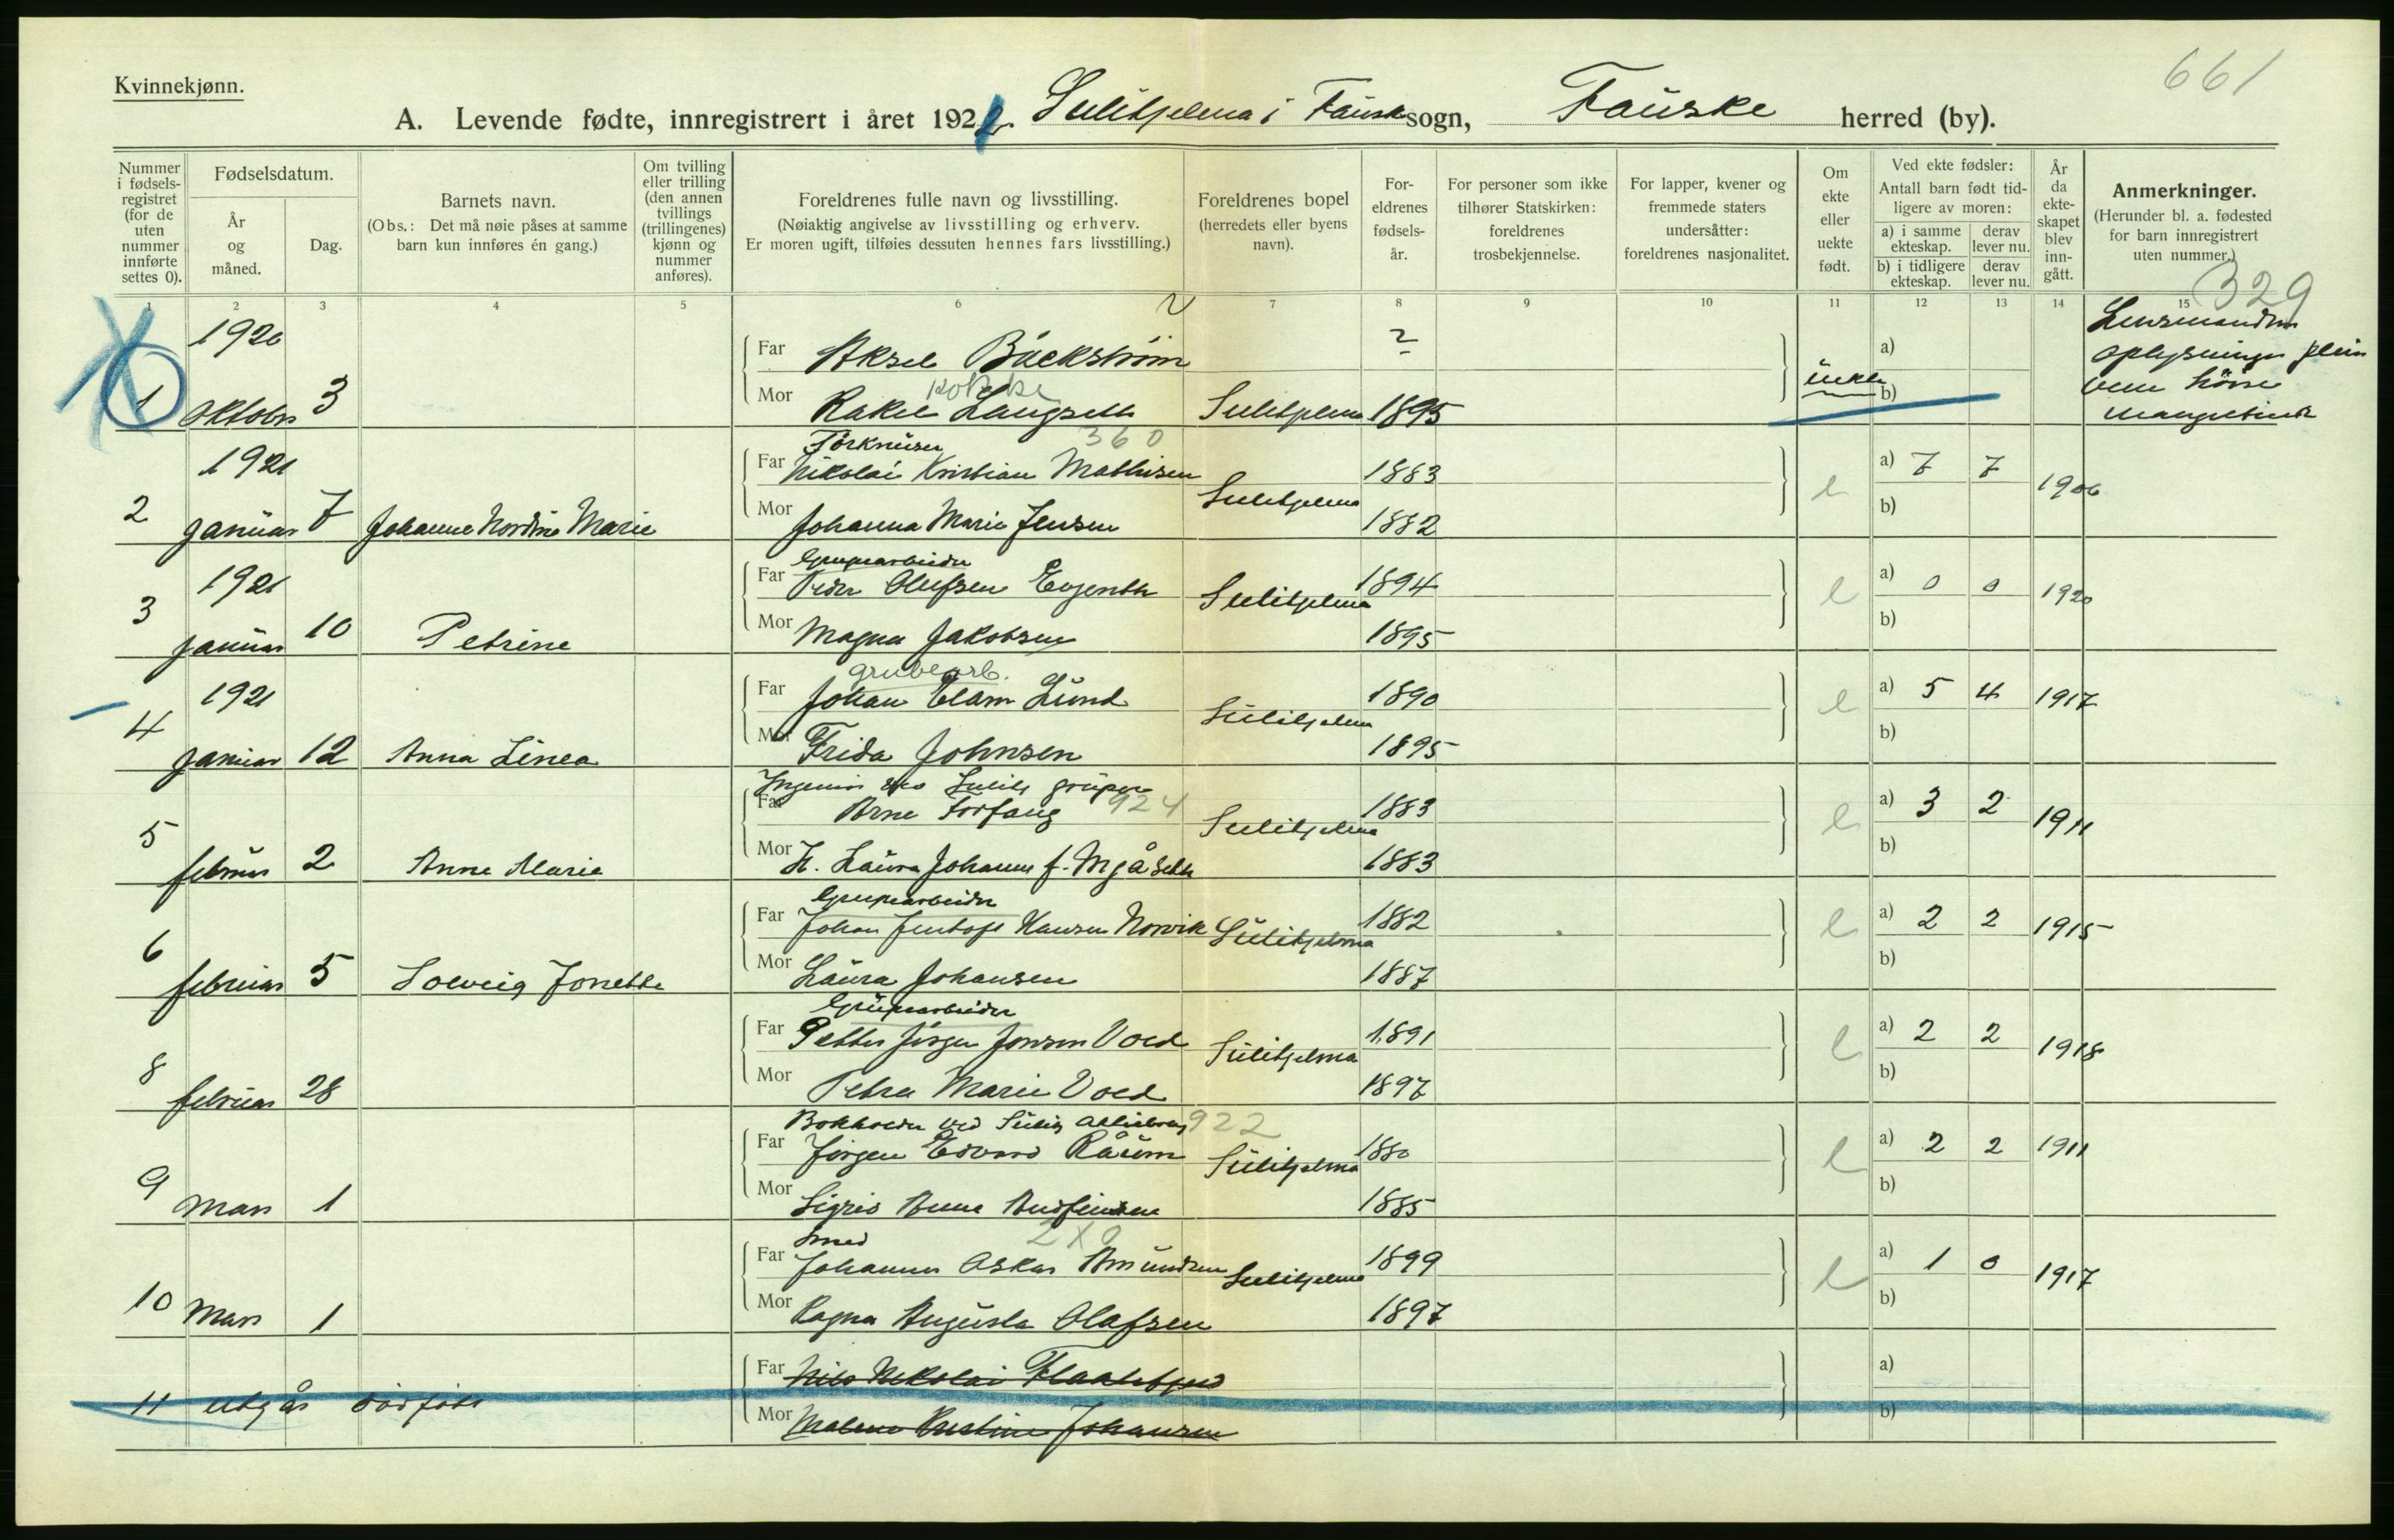 661
Kvinnekjønn.
A. Levende fødte, innregistrert i året 192 . Sulitjelma i Fausk sogn, Fauske herred (by).
Nummer i fødsels-registret (for de uten nummer innførte settes 0).
Fødselsdatum.
År og måned.
Dag.
Barnets navn.
(Obs.: Det må nøie påses at samme barn kun innføres én gang.)
Om tvilling eller trilling (den annen tvillings (trillingenes) kjønn og nummer anføres).
Foreldrenes fulle navn og livsstilling.
(Nøiaktig angivelse av livsstilling og erhverv.
Er moren ugift, tilføies dessuten hennes fars livsstilling.)
Foreldrenes bopel
(herredets eller byens navn).
For-eldrenes fødsels-år.
For personer som ikke tilhører Statskirken: foreldrenes trosbekjennelse.
For lapper, kvener og fremmede staters undersåtter: foreldrenes nasjonalitet.
Om ekte eller uekte født.
Ved ekte fødsler:
Antall barn født tid-ligere av moren:
a) i samme ekteskap.
derav lever nu.
b) i tidligere ekteskap.
derav lever nu.
År da ekte-skapet blev inn-gått.
Anmerkninger.
(Herunder bl. a. fødested for barn innregistrert uten nummer.)
329
1 2 3 4 5 6 7 8 9 10 11 12 13 14 15
1920
Far Aksel Bäckström ?
a)
1 oktober 3
Mor Rakel Langseth Sulitjelma 1895 uekte b)
360
1921
Far Nikolai Kristian Mathisen 1883
a) 7 7
Sulitjelma e 1906
2 januar 7 Johanne Nordine Marie
Mor Johanna Marie Jensen 1882
b)
Grubearbeider
1921
Far Peder Olufsen Evjenth 1894
a) 0 0
Sulitjelma e 1920
3 januar 10 Petrine
Mor Magna Jakobsen 1895
b)
grubearb.
1921
Far Johan Elam Lund 1890
a) 5 4
Sulitjelma e 1917
4 januar 12 Anna Linea
Mor Frida Johnsen 1895
b)
Ingeniør ved Sulitj gruper
Far Arne Forfang 924 1883
a) 3 2
Sulitjelma e 1911
5 februar 2 Anne Marie
Mor H. Laura Johanne f. Mjåseth 1883
b)
Grupearbeider
Far Johan Jentoft Hansen Norvik 1882
a) 2 2
Sulitjelma e 1915
6 februar 5 Solveig Jonette
Mor Laura Johansen 1887
b)
Grupearbeider
Far Petter Jörgen Jonsen Vold 1891
a) 2 2
Sulitjelma e 1918
8 februar 28
Mor Petra Marie Vold 1897
b)
Bokholder ved Sulitj 922
Far Jörgen Edvard Råum 1880
a) 2 2
Sulitjelma e 1911
9 Mars 1
Mor Sigrid Anna 1885
b)
Smed
Far Johannes Oskar Amundsen 1899
a) 1 0
Sulitjelma e 1917
10 Mars 1
Mor Ragna Augusta Olafsen 1897
b)
Far Nils Nikolai
a)
11 utgår dödfödt
Mor Kristine Johansen
b)